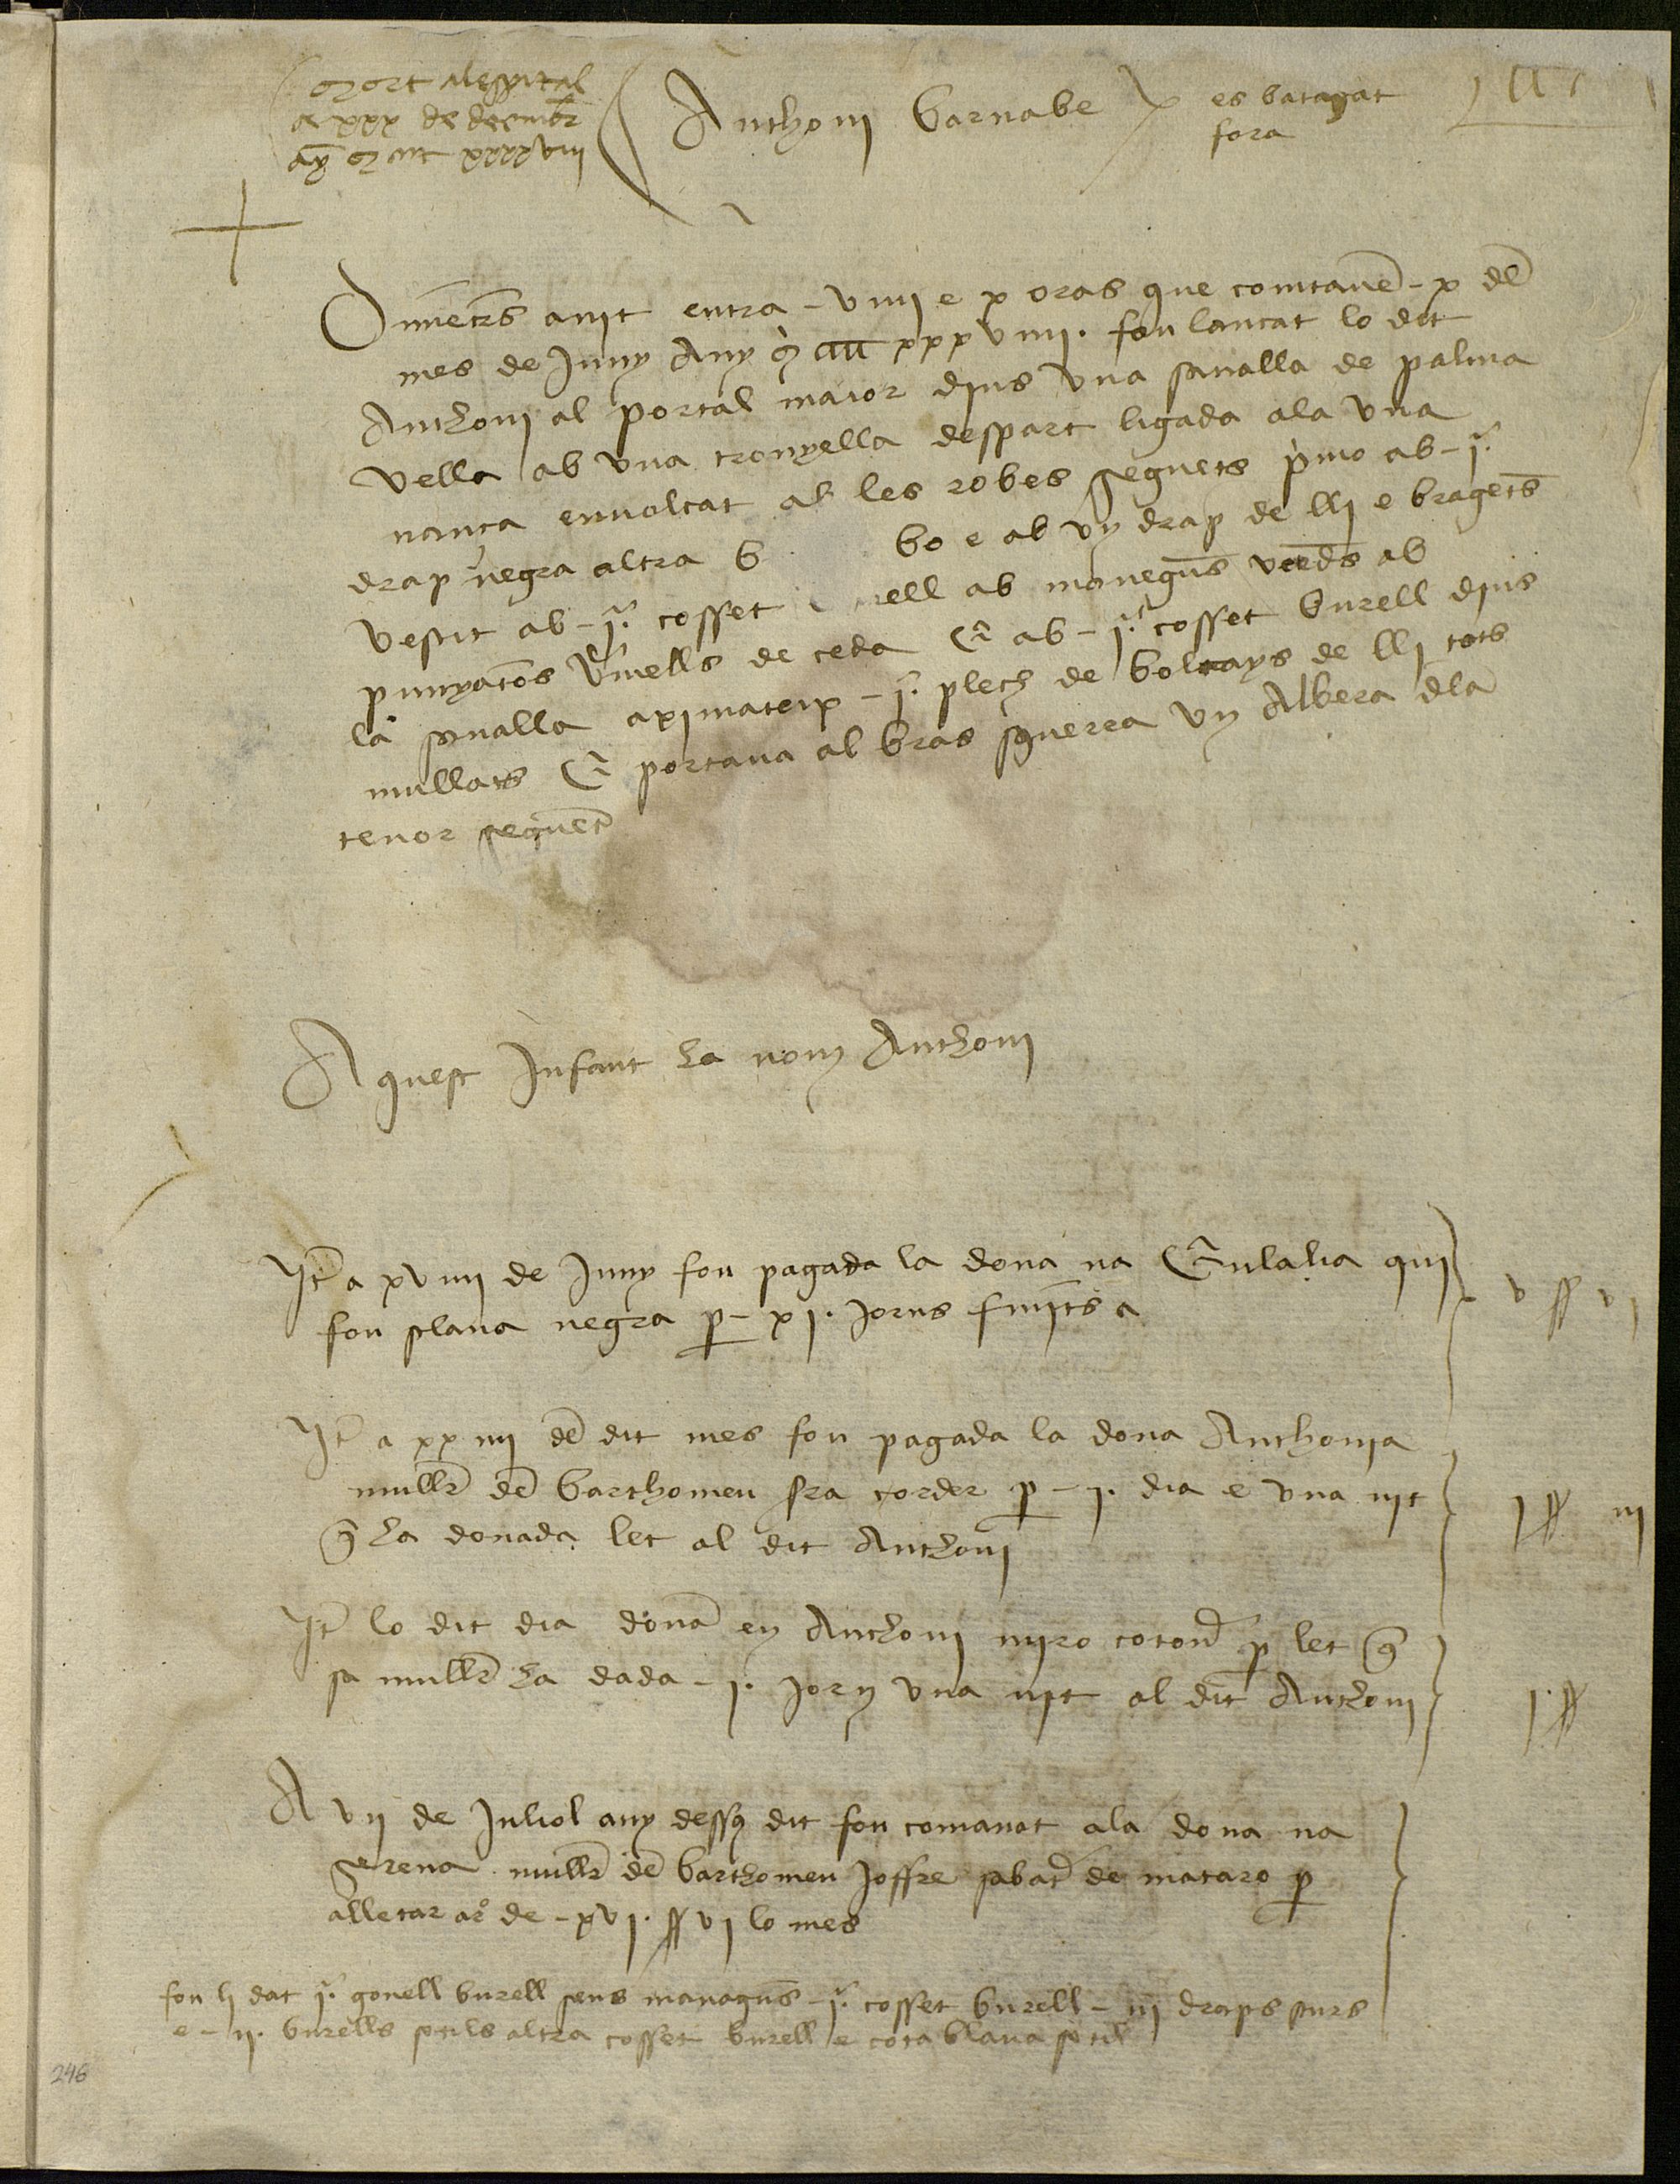 mort alespital
a xxx de deembr
any mcccc xxxx viii
Anthoni barnabe
es batagat
fora
Dimecrs anit entra - viiii e x oras que comtauē - x dē
mes de Juny Any m cccc xxxviiii. fou lancat lo dit
Anthoni al portal maior dins vna sanalla de palma
vella ab vna tronyella despart ligada ala vna
nanca enuolcat ab les robes seguets pmo ab - j.
drap negra altra b bo e ab vn drap de lli e bragets
vestit ab - j. cosset rell ab monegūs verds ab
punyatos vmells de ceda E ab - j. cosset burell dins
la sanalla aximateix - j. plech de bolcays de lli tots
mullats E portaua al bras squerra vn Albera dla
tenor seguēt
Aquest Infant ha nom Anthoni
Itē a xviiii de Juny fou pagada la dona na Eulalia qui
fou sclaua negra p - xj. jorns finits a
v ss vj
Itē a xxiiii dē dit mes fou pagada la dona Anthonia
mullr dē barthomeu fra corder p - j. dia e vna nit
q ha donada let al dit Anthoni
j ss iij
Itē lo dit dia donā en Anthoni miro cotonē p let q
sa mullr ha dada - j. jorn vna nit al dit Anthoni
j. ss
A vij de Juliol any dessq dit fou comanat ala dona na
serena mullr dē barthomeu Joffre sabatē de mataro p
alletar ar de - xvj. ss vj lo mes
fou li dat j. gonell burell sens managūs - j. cosset burell - iij draps purs
e - ij. burells sotils altra cosset burell e cota blaua sotil
246